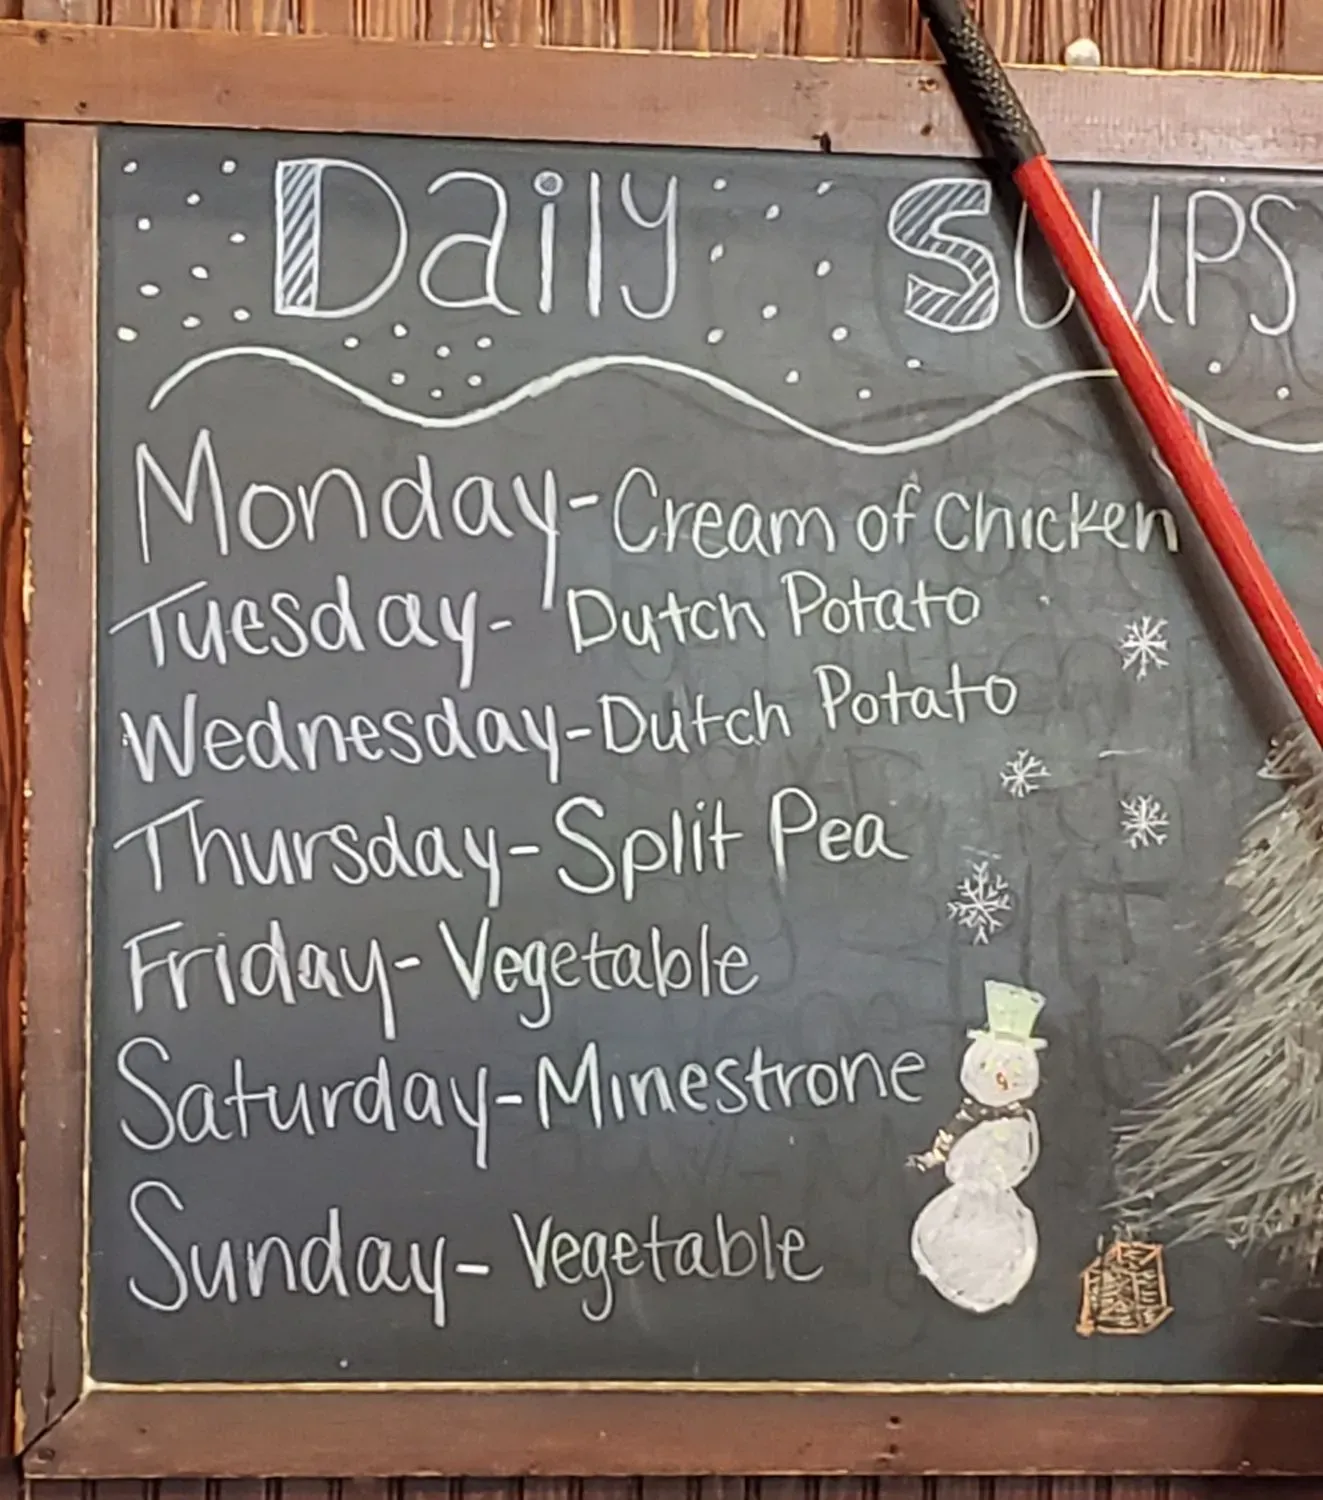 Daily Soups
Monday-Cream of Chicken
Tuesday- Dutch Potato
Wednesday-Dutch Potato
Thursday-Split Pea
Friday-Vegetable
Saturday-Minestrone
Sunday-Vegetable